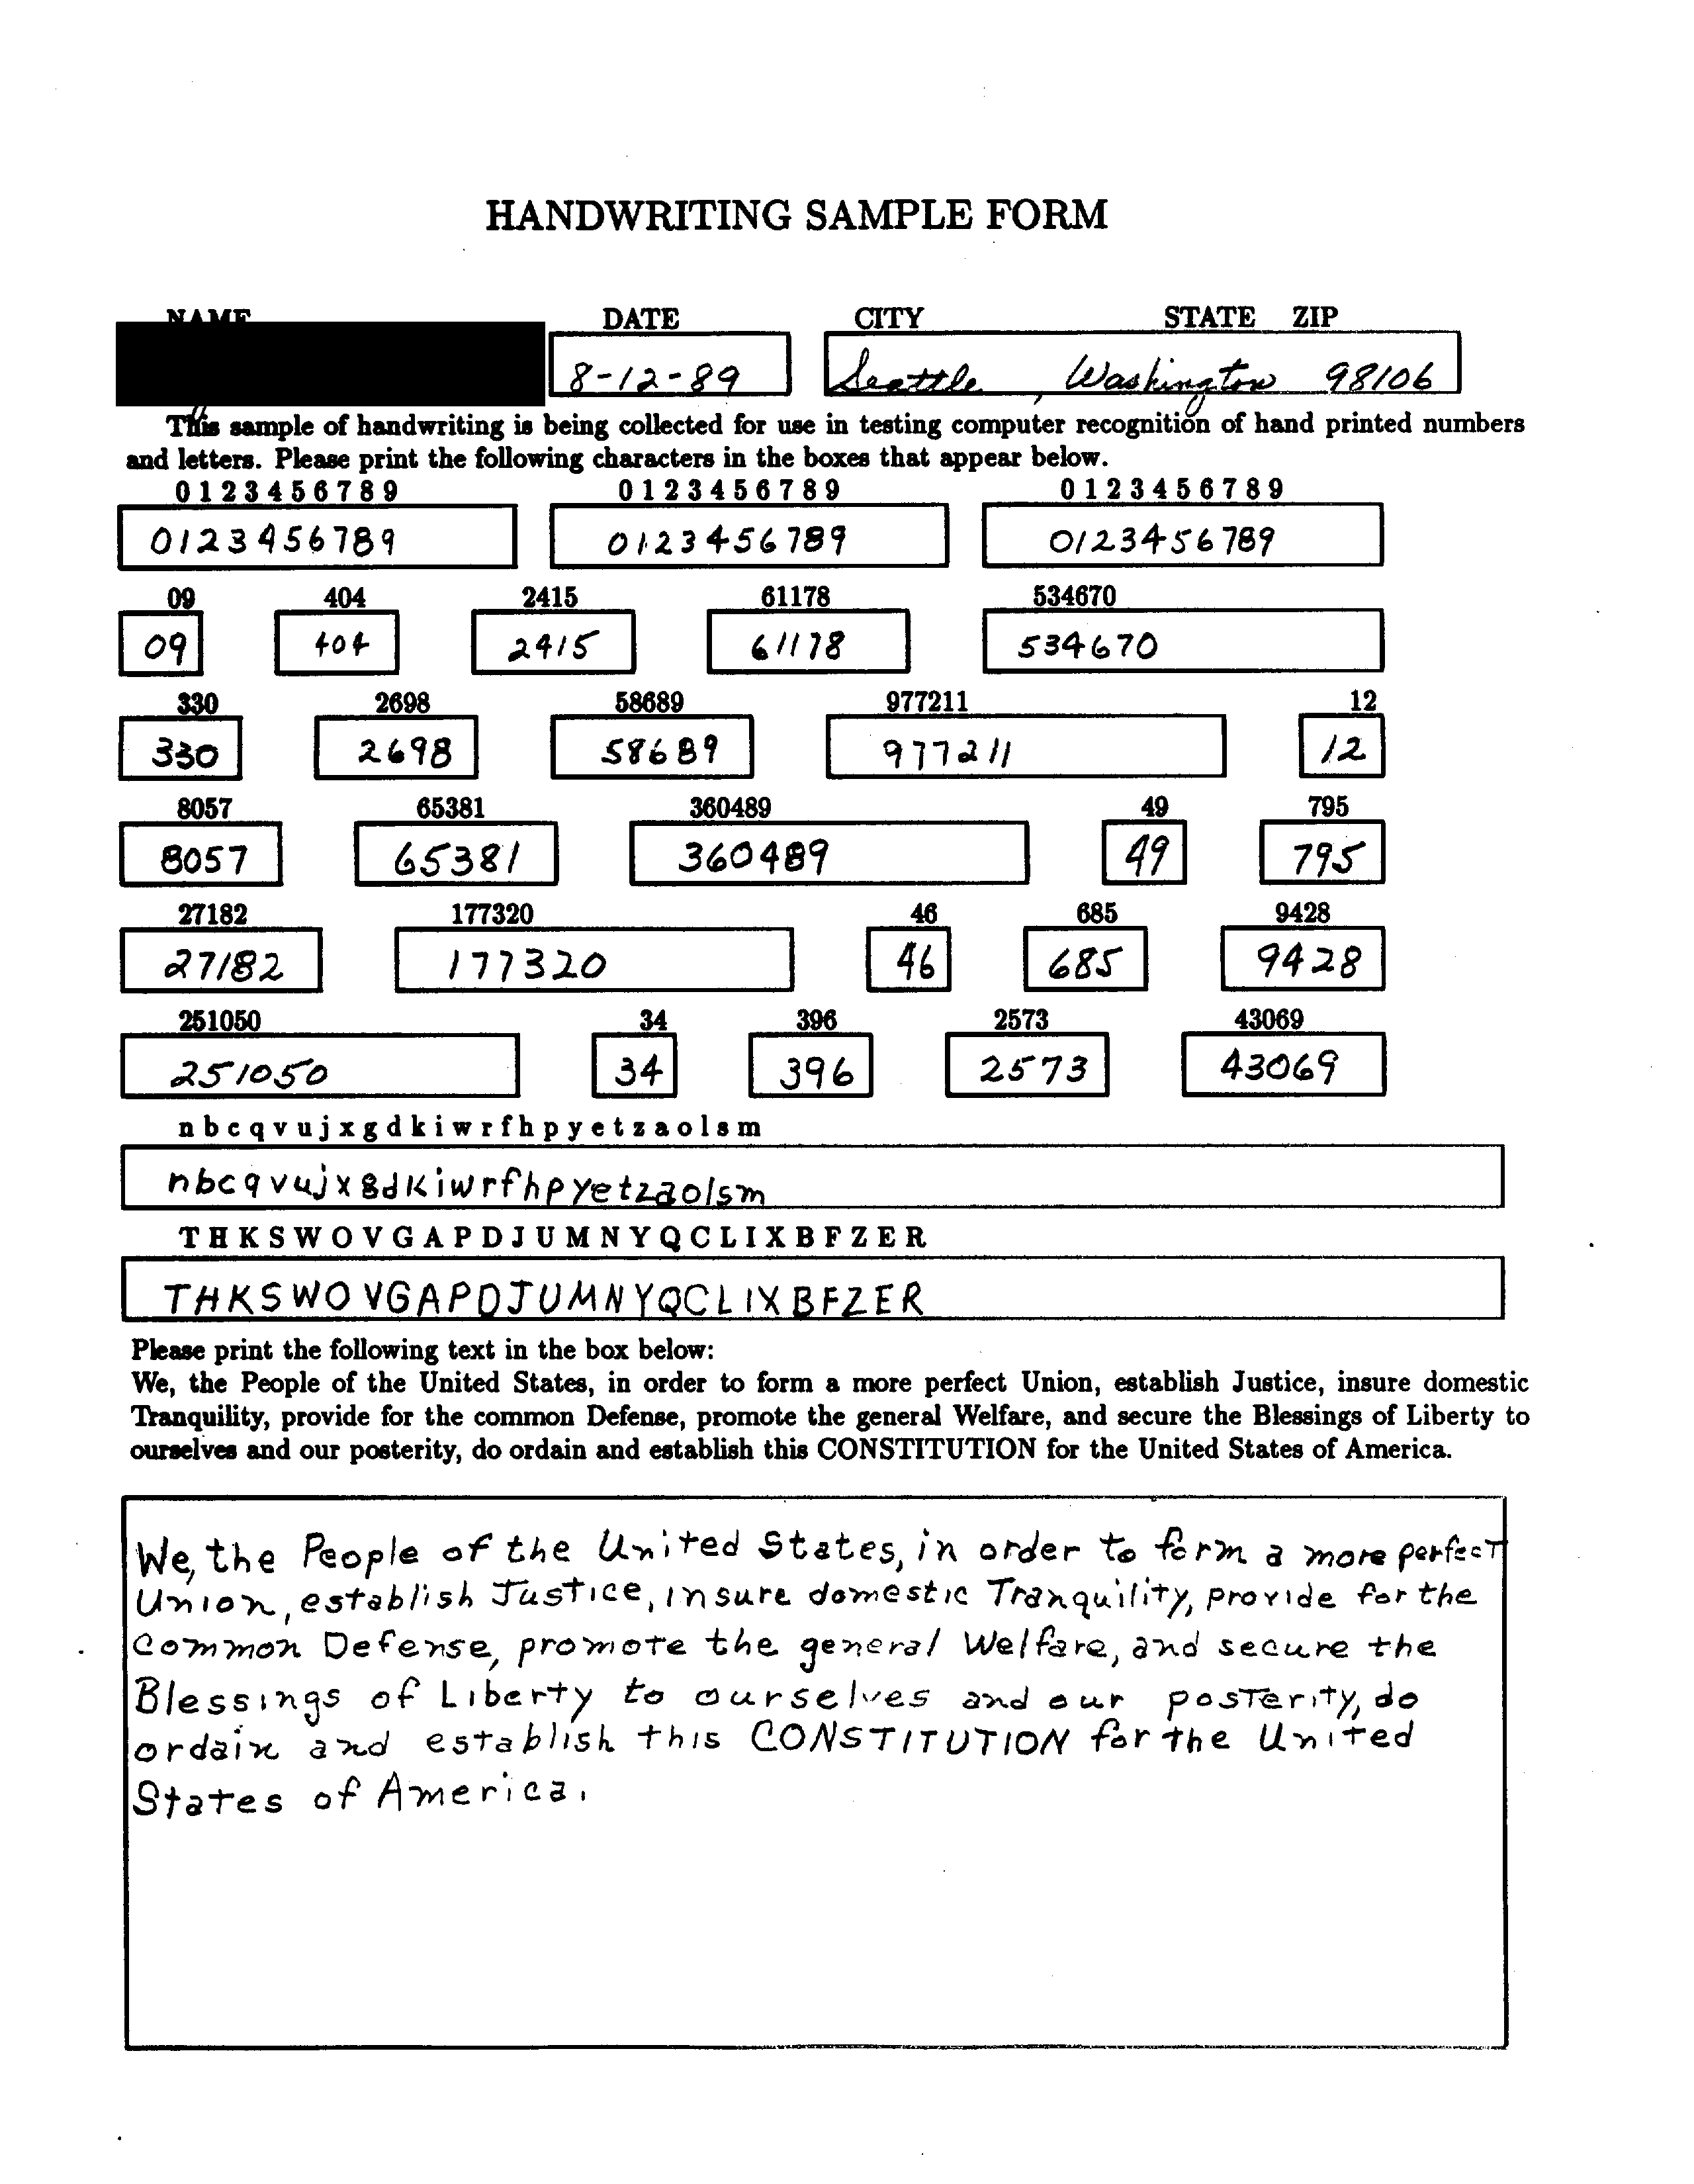 HANDWRITING SAMPLE FORM
NAME DATE CITY STATE ZIP
8-12-89 Seattle, Washington 98106
This sample of handwriting is being collected for use in testing computer recognition of hand printed numbers
and letters. Please print the following characters in the boxes that appear below.
0 1 2 3 4 5 6 7 8 9 0 1 2 3 4 5 6 7 8 9 0 1 2 3 4 5 6 7 8 9
0123456789 0123456789 0123456789
09 404 2415 61178 534670
09 404 2415 61178 534670
330 2698 58689 977211 12
330 2698 58689 977211 12
8057 65381 360489 49 795
8057 65381 360489 49 795
27182 177320 46 685 9428
27182 177320 46 685 9428
251050 34 396 2573 43069
251050 34 396 2573 43069
n b c q v u j x g d k i w r f h p y e t z a o l s m
nbcqvujxgdkiwrfhpyetzaolsm
T H K S W O V G A P D J U M N Y Q C L I X B F Z E R
THKSWOVGAPDJUMNYQCLIXBFZER
Please print the following text in the box below:
We, the People of the United States, in order to form a more perfect Union, establish Justice, insure domestic
Tranquility, provide for the common Defense, promote the general Welfare, and secure the Blessings of Liberty to
ourselves and our posterity, do ordain and establish this CONSTITUTION for the United States of America.
We, the People of the United States, in order to form a more perfect
Union, establish Justice, insure domestic Tranquility, provide for the
Common Defense, promote the general Welfare, and secure the
Blessings of Liberty to ourselves and our posterity, do
ordain and establish this CONSTITUTION for the United
States of America.